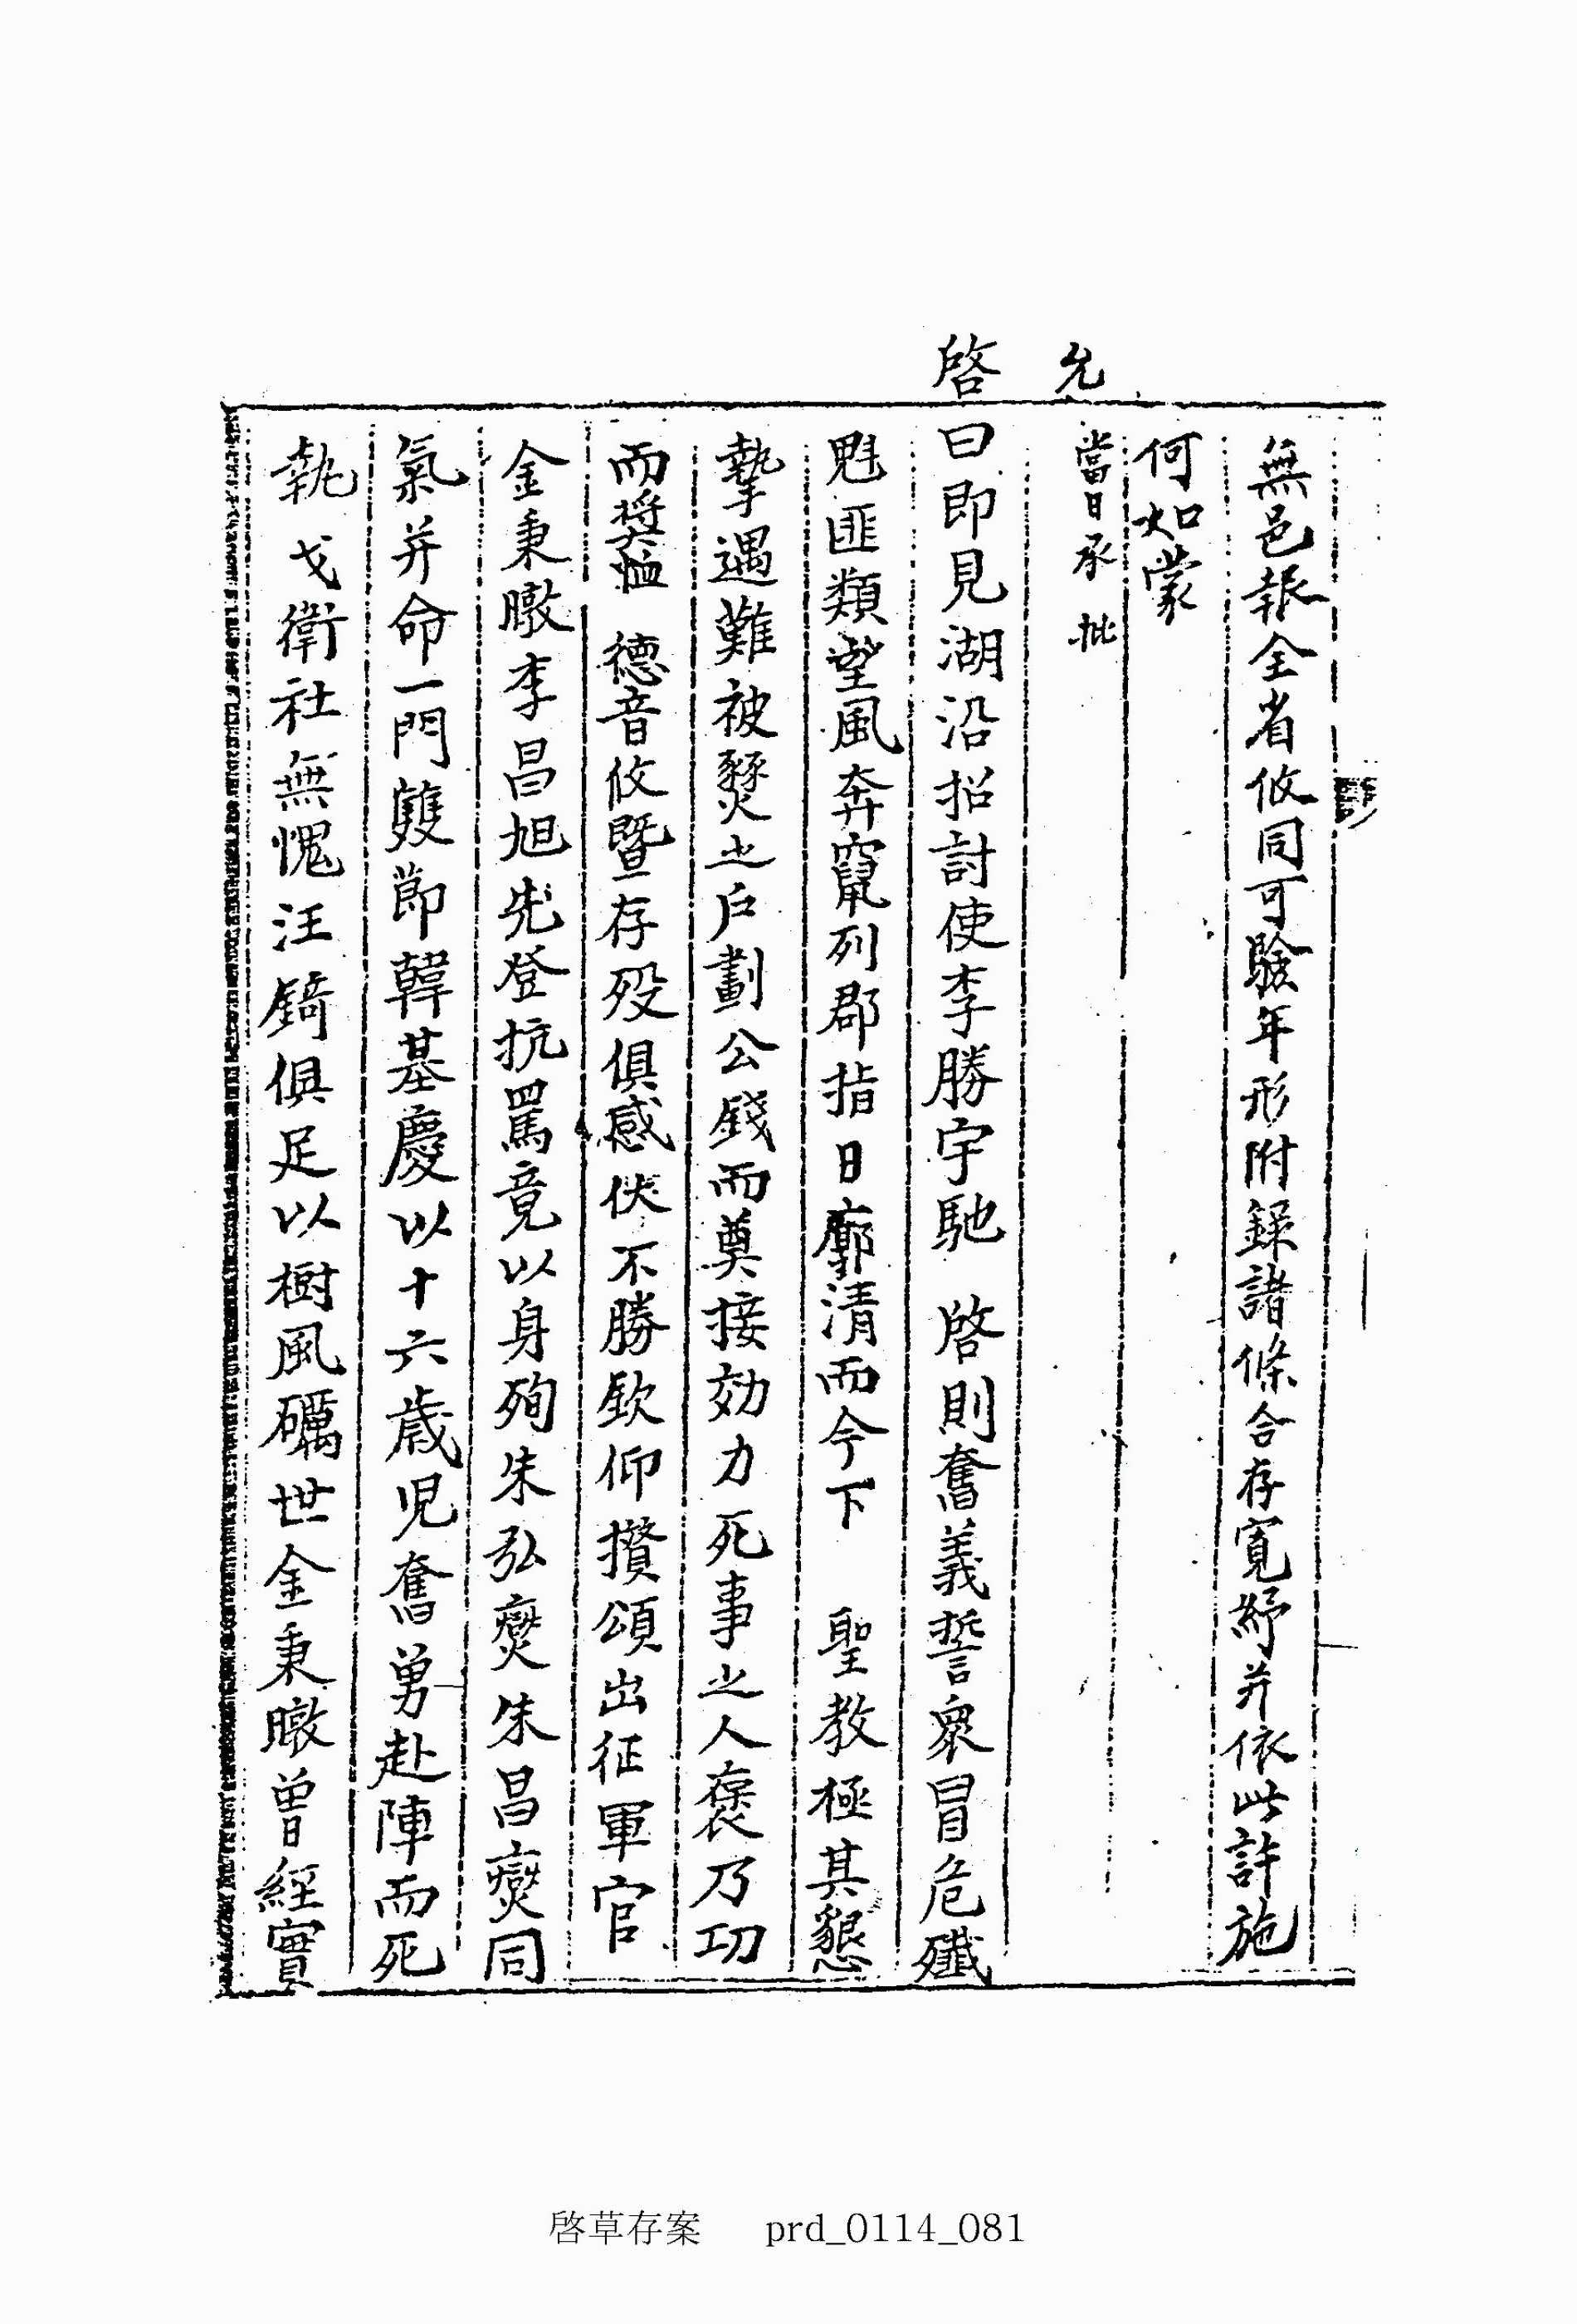 無邑報全省攸同可驗年形附錄諸條合存寬紓并依此許施
何如蒙
允
當日承 批
啓曰卽見湖沿招討使李勝宇馳 啓則奮義誓衆冒危殲
魁匪類望風奔竄列郡指日廓淸而今下 聖敎極其懇
摯遇難被燹之戶劃公錢而奠接効力死事之人褒乃功
而奬恤 德音攸曁存歿俱感伏不勝欽仰攢頌出征軍官
金秉暾李昌旭先登抗罵竟以身殉朱弘燮朱昌燮同
氣并命一門雙節韓基慶以十六歲児奮勇赴陣而死
執戈衛社無愧汪錡俱足以樹風礪世金秉暾曾經實
啓草存案 prd_0114_081